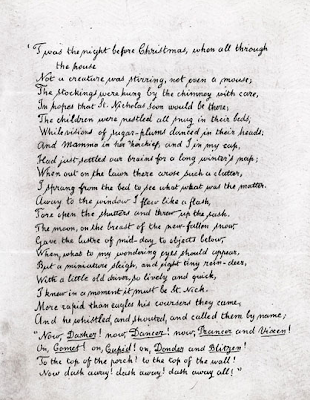 'Twas the night before Christmas, when all through
the house
Not a creature was stirring, not even a mouse;
The stockings were hung by the chimney with care,
In hopes that St. Nicholas soon would be there;
The children were nestled all snug in their beds,
While visions of sugar-plums danced in their heads;
And Mamma in her 'kerchief, and I in my cap,
Had just settled our brains for a long winter's nap;
When out on the lawn there arose such a clatter,
I sprang from the bed to see what what was the matter.
Away to the window I flew like a flash,
Tore open the shutters and threw up the sash.
The moon, on the breast of the new-fallen snow,
Gave the lustre of mid-day to objects below,
When, what to my wondering eyes should appear,
But a miniature sleigh, and eight tiny rein-deer,
With a little old driver, so lively and quick,
I knew in a moment it must be St. Nick.
More rapid than eagles his coursers they came,
And he whistled, and shouted, and called them by name;
"Now, Dasher! now, Dancer! now, Prancer and Vixen!
On, Comet! on, Cupid! on, Donder and Blitzen!
To the top of the porch! to the top of the wall!
Now dash away! dash away! dash away all!"